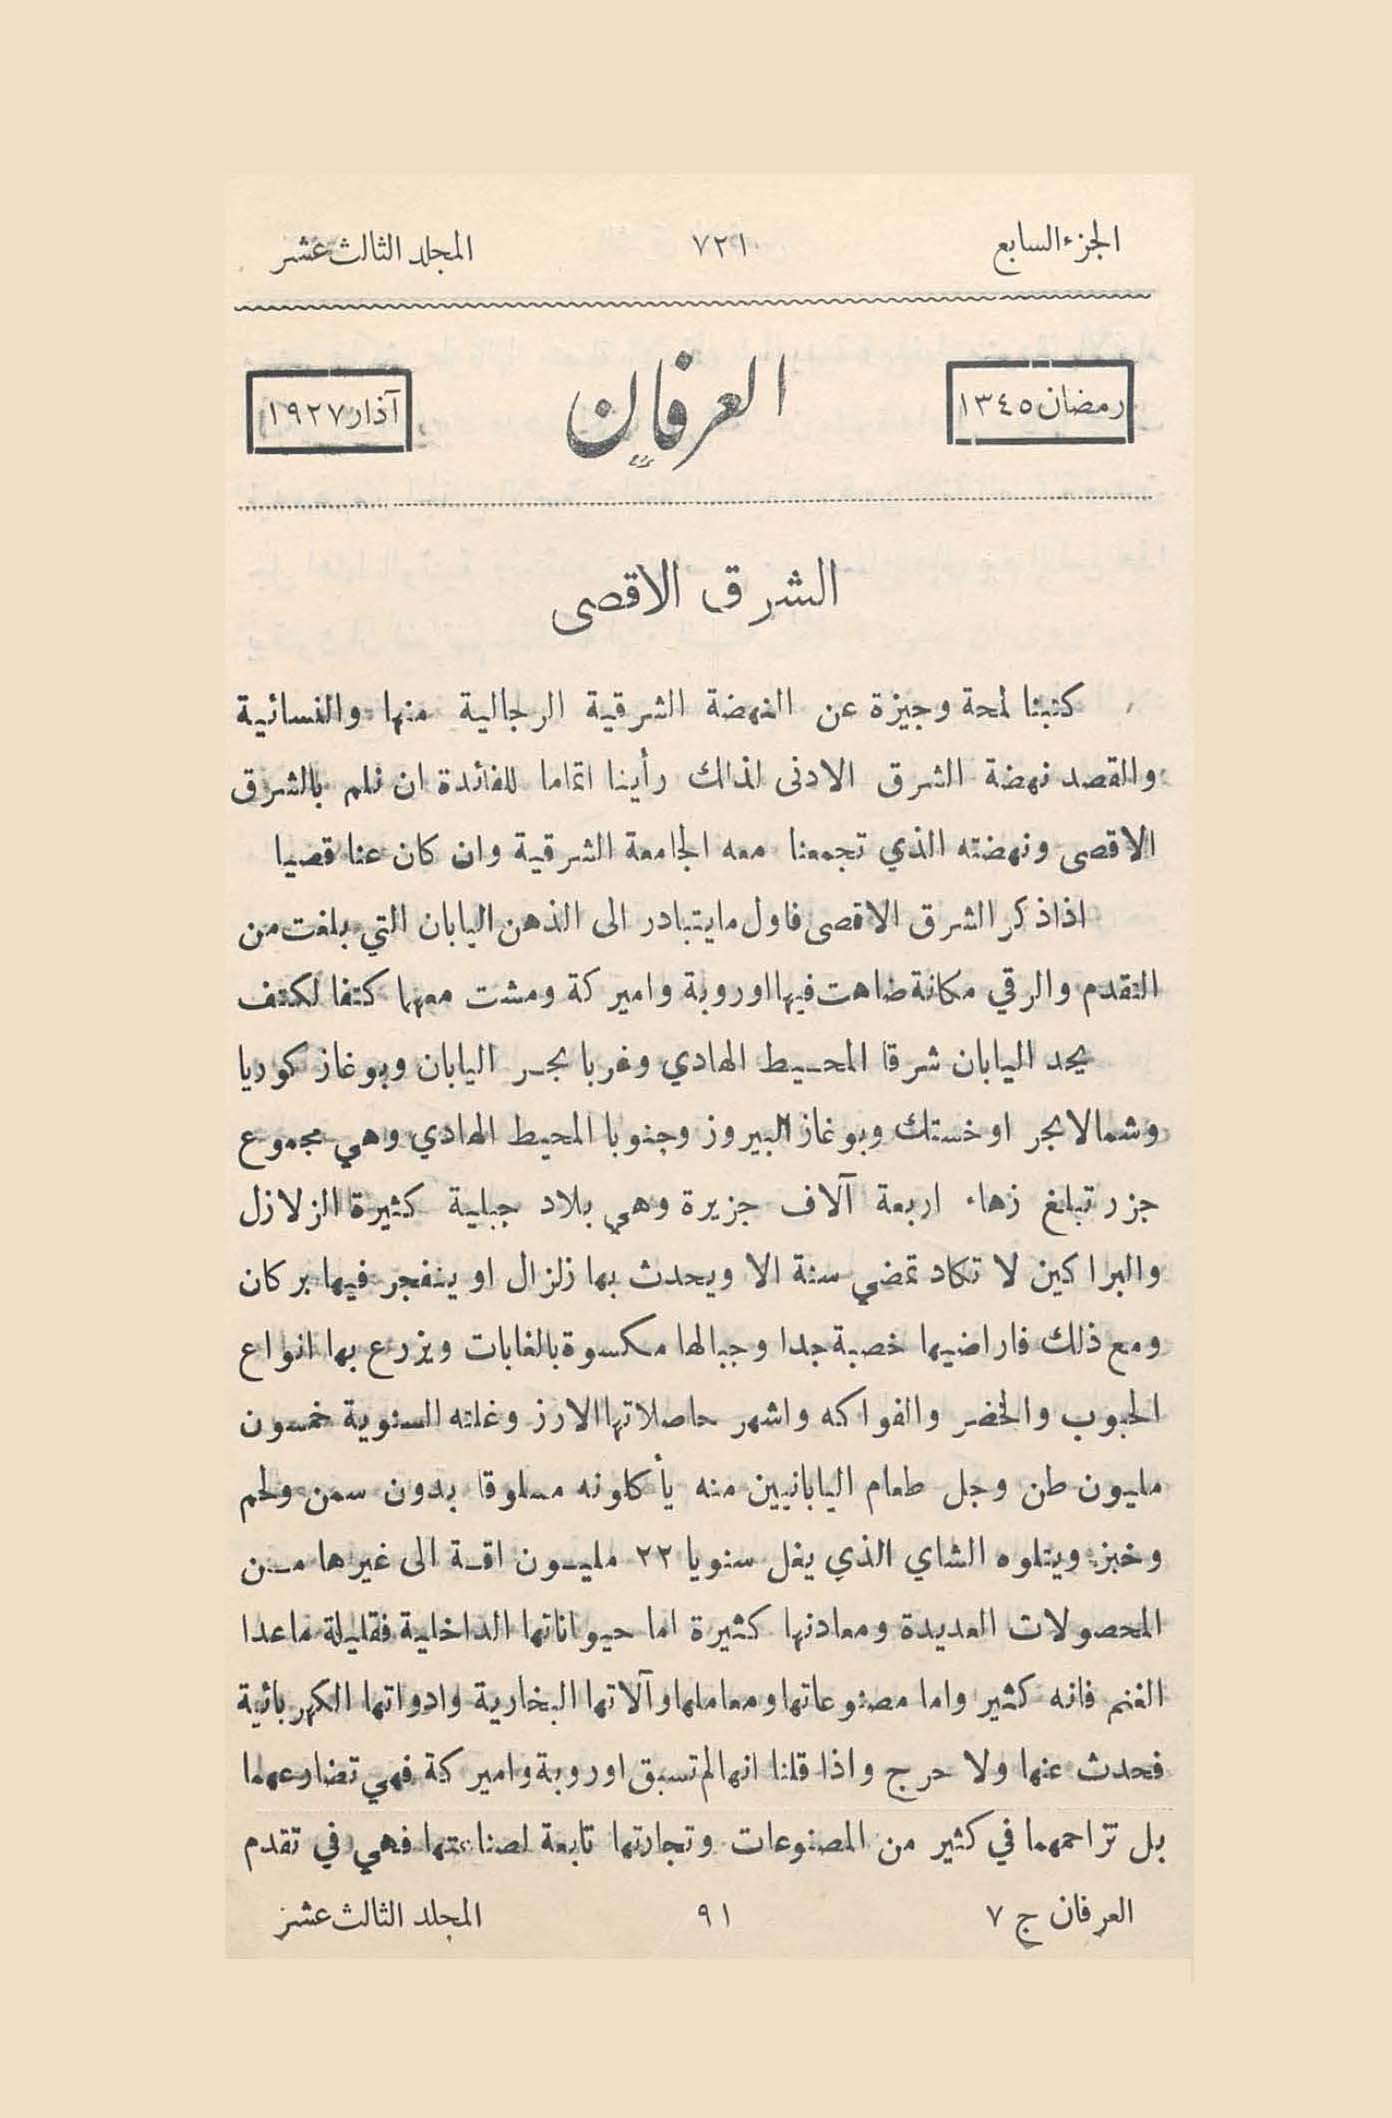 الجزء السابع ٧٢١ المجلد الثالث عشر
رمضان ١٣٤٥ العرفان آذار ١٩٢٧
الشرق الاقصى
كتبنا لمحة وجيزة عن النهضة الشرقية الرجالية منها والنسائية
والقصد نهضة الشرق الادنى لذلك رأينا اتماما للفائدة ان نلم بالشرق
الاقصى ونهضته الذي تجمعنا معه الجامعة الشرقية وان كان عنا قصيا
اذا ذكر الشرق الاقصى فاول ما يتبادر الى الذهن اليابان التي بلغت من
التقدم والرقي مكانة ضاهت فيها اوروبة واميركة ومشت معهما كتفا لكتف
يحد اليابان شرقا المحيط الهادي وغربا بحر اليابان وبوغاز كوريا
وشمالا بحر اوخستك وبوغاز البيروز وجنوبا المحيط الهادي وهي مجموع
جزر تبلغ زهاء اربعة آلاف جزيرة وهي بلاد جبلية كثيرة الزلازل
والبراكين لا تكاد تمضي سنة الا ويحدث بها زلزال او ينفجر فيها بركان
ومع ذلك فاراضيها خصبة جدا وجبالها مكسوة بالغابات ويزرع بها انواع
الحبوب والخضر والفواكه واشهر حاصلاتها الارز وغلته السنوية خمسون
مليون طن وجل طعام اليابانيين منه يأكلونه مسلوقا بدون سمن ولحم
وخبز ويتلوه الشاي الذي يغل سنويا ٢٢ مليون اقة الى غيرها من
المحصولات العديدة ومعادنها كثيرة اما حيواناتها الداخلية فقليلة ماعدا
الغنم فانه كثير واما مصنوعاتها ومعاملها وآلاتها البخارية وادواتها الكهربائية
فحدث عنها ولا حرج واذا قلنا انها لم تسبق اوروبة واميركة فهي تضارعهما
بل تزاحمهما في كثير من المصنوعات وتجارتها تابعة لصناعتها فهي في تقدم
العرفان ج ٧ ٩١ المجلد الثالث عشر